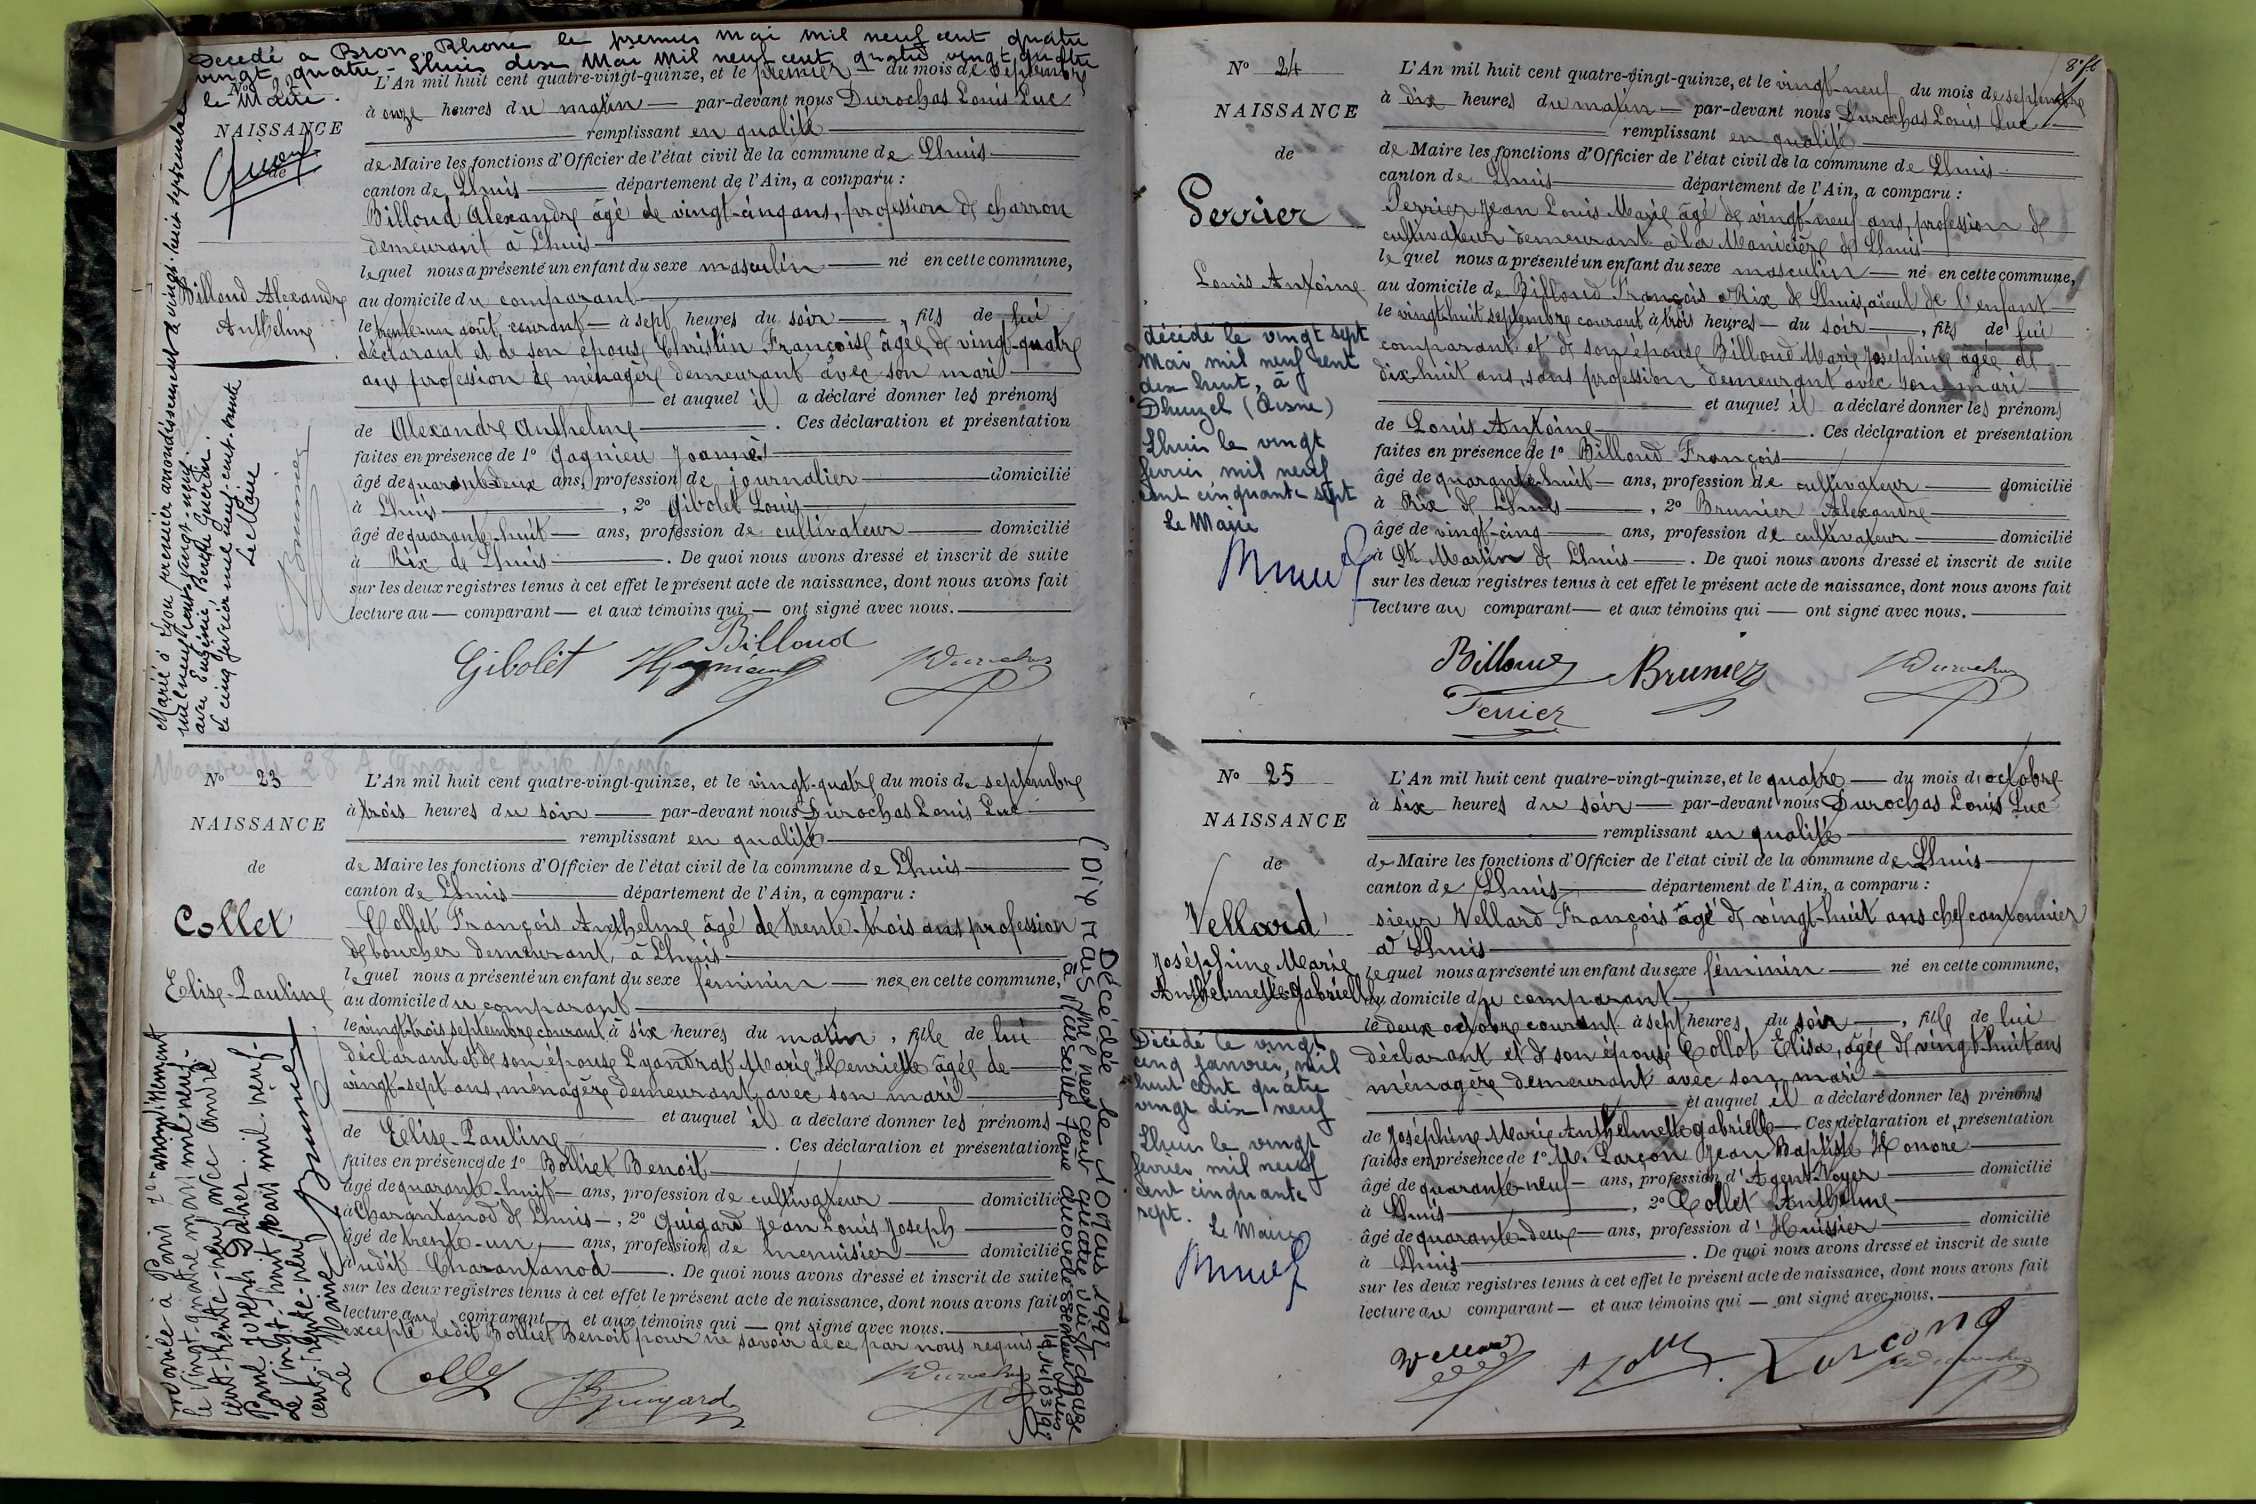 Decedé a Bron. Rhone le premier mai mil neuf cent quatre
vingt quatre - Lhuis dix Mai mil neuf cent quatre vingt quatre
le Maire.
N° 22
NAISSANCE
de
Billoud Alexandre
Anthelme
L'An mil huit cent quatre-vingt-quinze, et le premier du mois de septembre
à onze heures du matin par-devant nous Durochas Louis Luc
remplissant en qualité
de Maire les fonctions d'Officier de l'état civil de la commune de Lhuis
canton de Lhuis département de l'Ain, a comparu :
Billoud Alexandre âgé de vingt-cinq ans, profession de charron
demeurant à Lhuis
lequel nous a présenté un enfant du sexe masculin né en cette commune,
au domicile du comparant
le trente-un août, courant à sept heures du soir, fils de lui
déclarant et de son épouse Christin Françoise âgée de vingt-quatre
ans profession de ménagère demeurant avec son mari
et auquel il a déclaré donner les prénoms
de Alexandre Anthelme. Ces déclaration et présentation
faites en présence de 1° Gagnieu Joannès
âgé de quarante-deux ans, profession de journalier domicilié
à Lhuis, 2° Gibolet Louis
âgé de quarante-huit ans, profession de cultivateur domicilié
à Rix de Lhuis. De quoi nous avons dressé et inscrit de suite
sur les deux registres tenus à cet effet le présent acte de naissance, dont nous avons fait
lecture au comparant et aux témoins qui ont signé avec nous.
Billoud
Gibolet Gagnieu Durochas
Marié à Lyon premier arrondissement le vingt-huit septembre
mil neuf cent vingt-neuf
avec Eugénie, Berthe Guerdin.
Le cinq février mil neuf cent trente
Le Maire
Brunier
N° 23
NAISSANCE
de
Collet
Elise-Pauline
L'An mil huit cent quatre-vingt-quinze, et le vingt-quatre du mois de septembre
à trois heures du soir par-devant nous Durochas Louis Luc
remplissant en qualité
de Maire les fonctions d'Officier de l'état civil de la commune de Lhuis
canton de Lhuis département de l'Ain, a comparu :
Collet François Anthelme âgé de trente-trois ans profession
de boucher demeurant, à Lhuis
lequel nous a présenté un enfant du sexe féminin née en cette commune,
au domicile du comparant
le vingt-trois septembre courant à six heures du matin, fille de lui
déclarant et de son épouse Lyandrat Marie Henriette âgée de
vingt-sept ans, ménagère demeurant avec son mari
et auquel il a déclaré donner les prénoms
de Elise-Pauline. Ces déclaration et présentation
faites en présence de 1° Bolliet Benoit
âgé de quarante-huit ans, profession de cultivateur domicilié
à Charantanod de Lhuis, 2° Guigard Jean Louis Joseph
âgé de trente-un ans, profession de menuisier domicilié
à udit Charantanod. De quoi nous avons dressé et inscrit de suite
sur les deux registres tenus à cet effet le présent acte de naissance, dont nous avons fait
lecture au comparant et aux témoins qui ont signé avec nous.
excepté ledit Bolliet Benoit pour ne savoir de ce par nous requis
Collet Guigard Durochas
Mariée à Paris 7e arrondissement
le vingt-quatre mars mil neuf-
cent-trente-neuf avec André
Paul Joseph Daher.
Le vingt-huit mars mil-neuf-
cent-trente-neuf
Le Maire
Brunier
Décédée le 10 Mars 1992
(Dix Mars mil neuf cent quatre vingt douze
à Marseille
N° 24
NAISSANCE
de
Perrier
Louis Antoine
décédé le vingt sept
Mai mil neuf cent
dix huit, à
Dhuizel (Aisne)
Lhuis le vingt
février mil neuf
cent cinquante sept
Le Maire
L'An mil huit cent quatre-vingt-quinze, et le vingt-neuf du mois de septembre
à dix heures du matin par-devant nous Durochas Louis Luc
remplissant en qualité
de Maire les fonctions d'Officier de l'état civil de la commune de Lhuis
canton de Lhuis département de l'Ain, a comparu :
Perrier Jean Louis Marie âgé de vingt-neuf ans, profession de
cultivateur demeurant à la Manicière de Lhuis
lequel nous a présenté un enfant du sexe masculin né en cette commune,
au domicile de Billoud François à Rix de Lhuis, aïeul de l'enfant
le vingt-huit septembre courant à trois heures du soir, fils de lui
comparant et de son épouse Billoud Marie Josephine âgée de
dix-huit ans, sans profession demeurant avec son mari
et auquel il a déclaré donner les prénoms
de Louis Antoine. Ces déclaration et présentation
faites en présence de 1° Billoud François
âgé de quarante-huit ans, profession de cultivateur domicilié
à Rix de Lhuis, 2° Brunier Alexandre
âgé de vingt-cinq ans, profession de cultivateur domicilié
à St Martin de Lhuis. De quoi nous avons dressé et inscrit de suite
sur les deux registres tenus à cet effet le présent acte de naissance, dont nous avons fait
lecture au comparant et aux témoins qui ont signé avec nous.
Billoud Brunier Durochas
Perrier
N° 25
NAISSANCE
de
Vellard
Joséphine Marie
Anthelmette Gabrielle
Décédé le vingt
cinq Janvier, mil
huit cent quatre
vingt dix neuf
Lhuis le vingt
février mil neuf
cent cinquante
sept.
Le Maire
L'An mil huit cent quatre-vingt-quinze, et le quatre du mois d'octobre
à six heures du soir par-devant nous Durochas Louis Luc
remplissant en qualité
de Maire les fonctions d'Officier de l'état civil de la commune de Lhuis
canton de Lhuis département de l'Ain, a comparu :
sieur Vellard François âgé de vingt-huit ans chef cantonnier
à Lhuis
lequel nous a présenté un enfant du sexe féminin né en cette commune,
au domicile du comparant
le deux octobre courant à sept heures du soir, fille de lui
déclarant et de son épouse Collot Elisa, âgée de vingt-huit ans
ménagère demeurant avec son mari
et auquel il a déclaré donner les prénoms
de Joséphine Marie Anthelmette Gabrielle Ces déclaration et présentation
faites en présence de 1° M. Larçon Jean Baptiste Honoré
âgé de quarante-neuf ans, profession d'Agent-Voyer domicilié
à Lhuis, 2° Collet Anthelme
âgé de quarante-deux ans, profession d'Huissier domicilié
à Lhuis. De quoi nous avons dressé et inscrit de suite
sur les deux registres tenus à cet effet le présent acte de naissance, dont nous avons fait
lecture au comparant et aux témoins qui ont signé avec nous.
Vellard Larçon